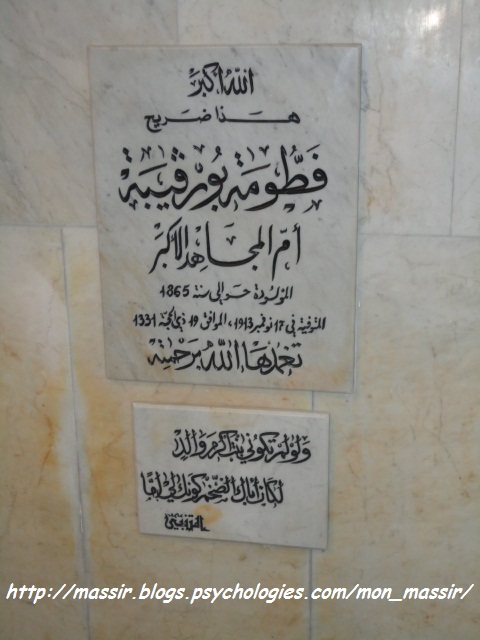 الله أكبر
هذا ضريح
فَطُّومَة بُورڨيبَة
أمّ المجاهد الأكبر
المولودة حوالي سنة 1865
المتوفية في 17 نوفمبر 1913، الموافق 19 ذي الحجة 1331
تغمدها الله برحمته
ولو لم تكوني بنت أكرم والد
لكان أباك الضخم كونك لي أمّا
المتنبي
http://massir.blogs.psychologies.com/mon_massir/